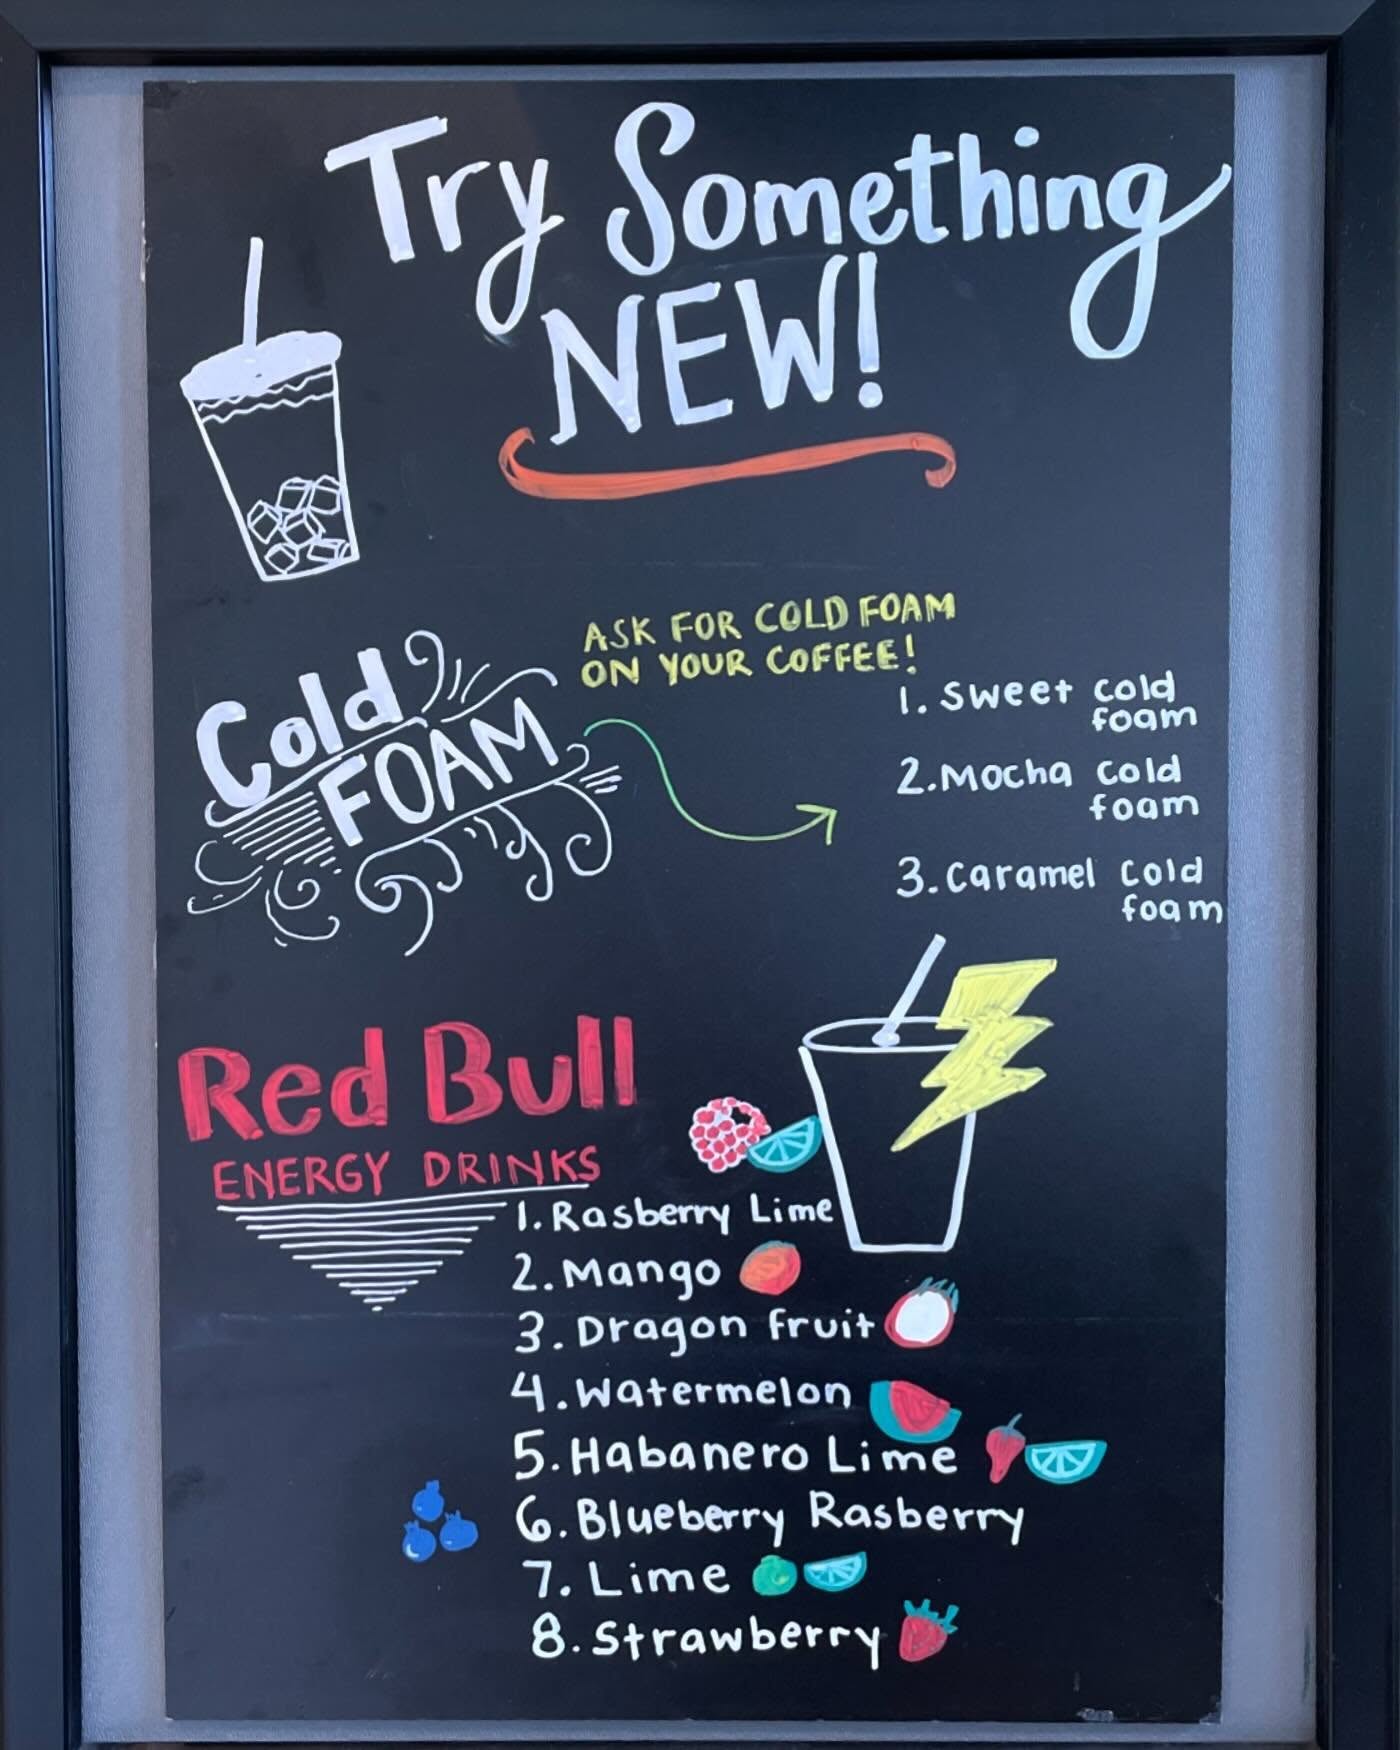 Try Something
NEW!
ASK FOR COLD FOAM
ON YOUR COFFEE!
Cold
FOAM
1. Sweet cold
foam
2. Mocha cold
foam
3. Caramel cold
foam
Red Bull
ENERGY DRINKS
1. Rasberry Lime
2. Mango
3. Dragon fruit
4. Watermelon
5. Habanero Lime
6. Blueberry Rasberry
7. Lime
8. Strawberry